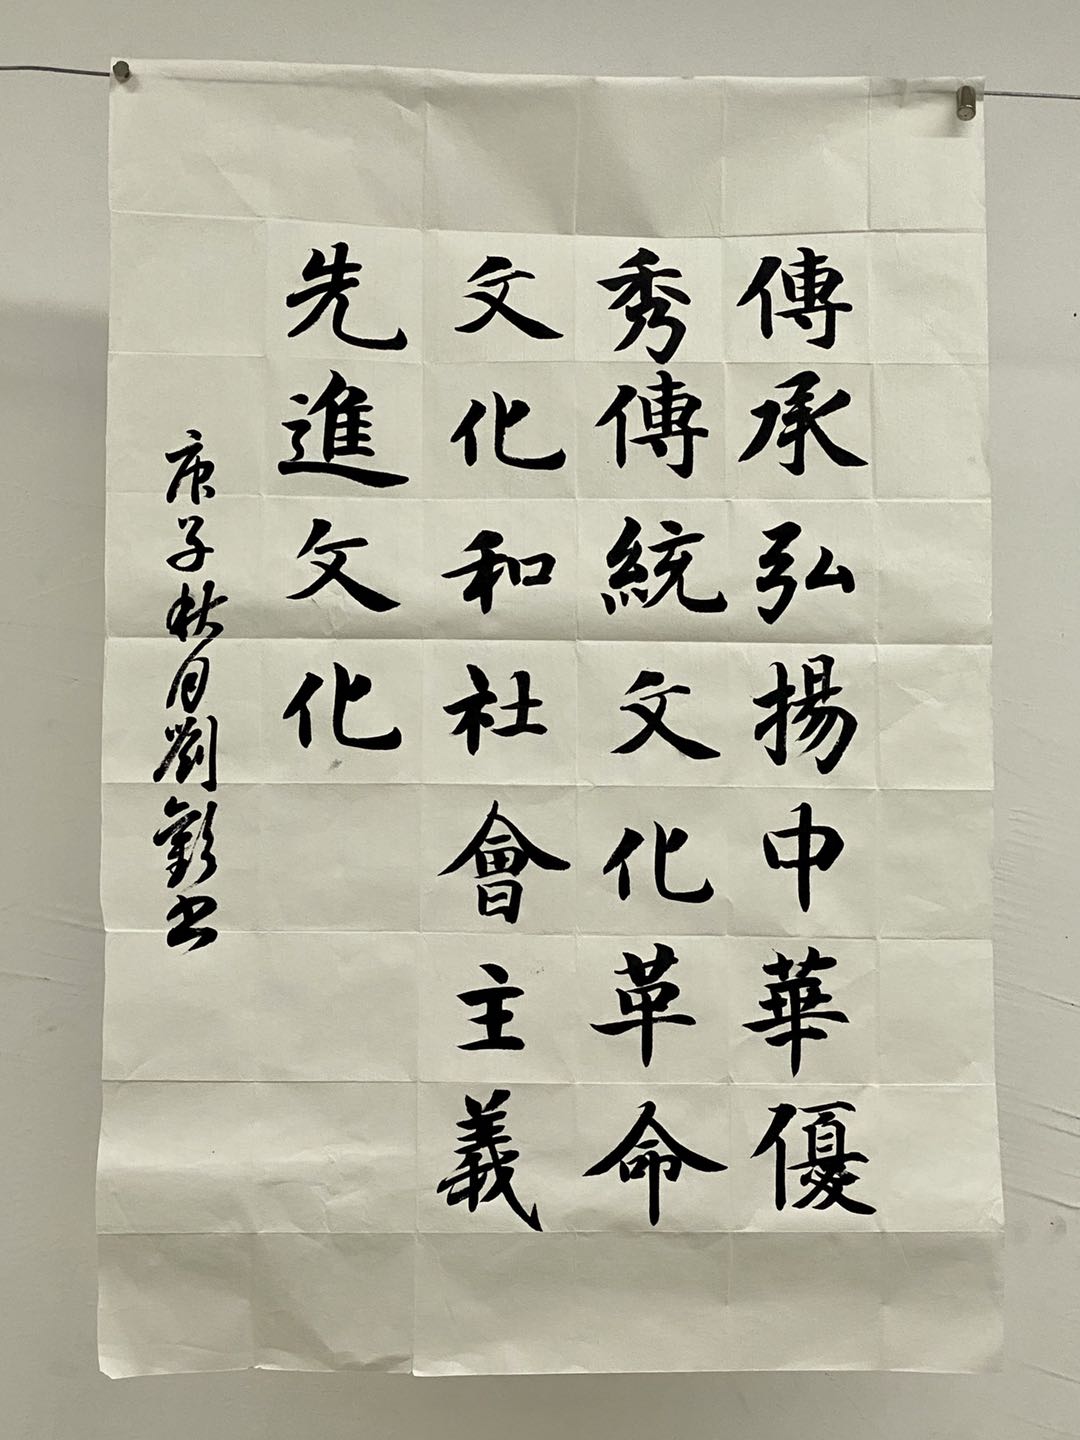 傳承弘揚中華優
秀傳統文化革命
文化和社會主義
先進文化
庚子秋月劉書